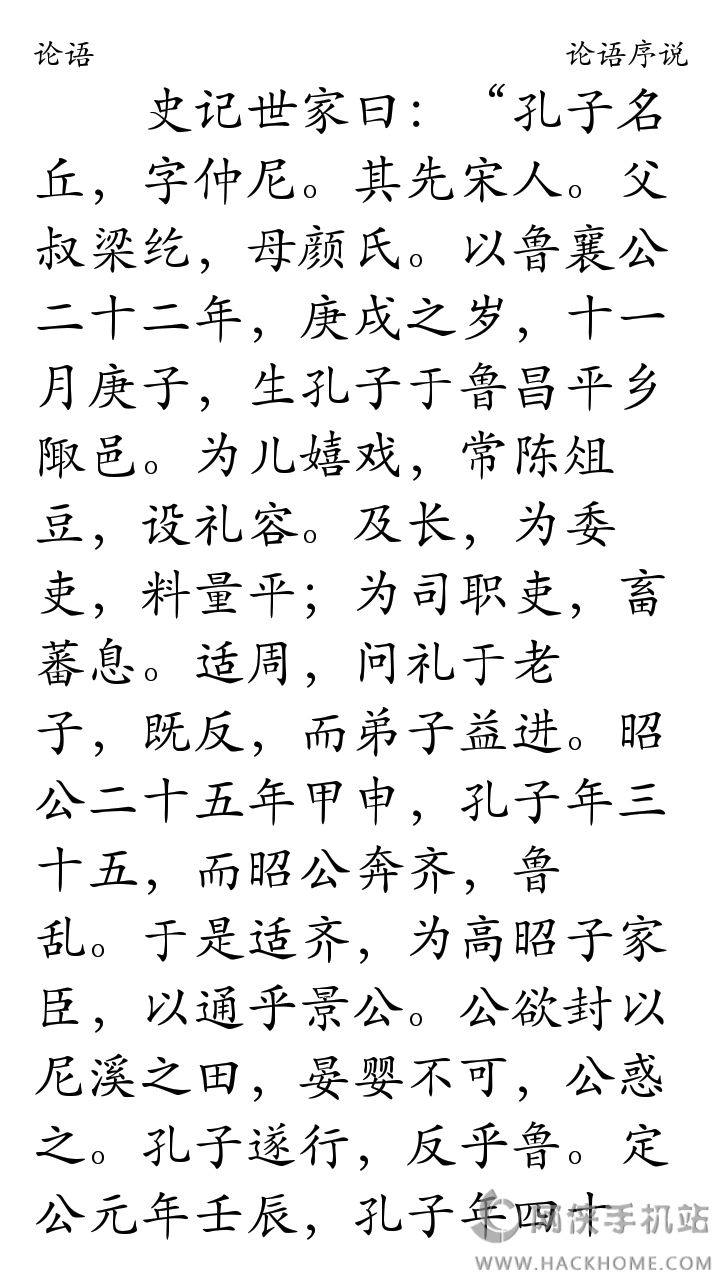 论语 论语序说
史记世家曰：“孔子名
丘，字仲尼。其先宋人。父
叔梁纥，母颜氏。以鲁襄公
二十二年，庚戌之岁，十一
月庚子，生孔子于鲁昌平乡
陬邑。为儿嬉戏，常陈俎
豆，设礼容。及长，为委
吏，料量平；为司职吏，畜
蕃息。适周，问礼于老
子，既反，而弟子益进。昭
公二十五年甲申，孔子年三
十五，而昭公奔齐，鲁
乱。于是适齐，为高昭子家
臣，以通乎景公。公欲封以
尼溪之田，晏婴不可，公惑
之。孔子遂行，反乎鲁。定
公元年壬辰，孔子年四十
网侠手机站
WWW.HACKHOME.COM